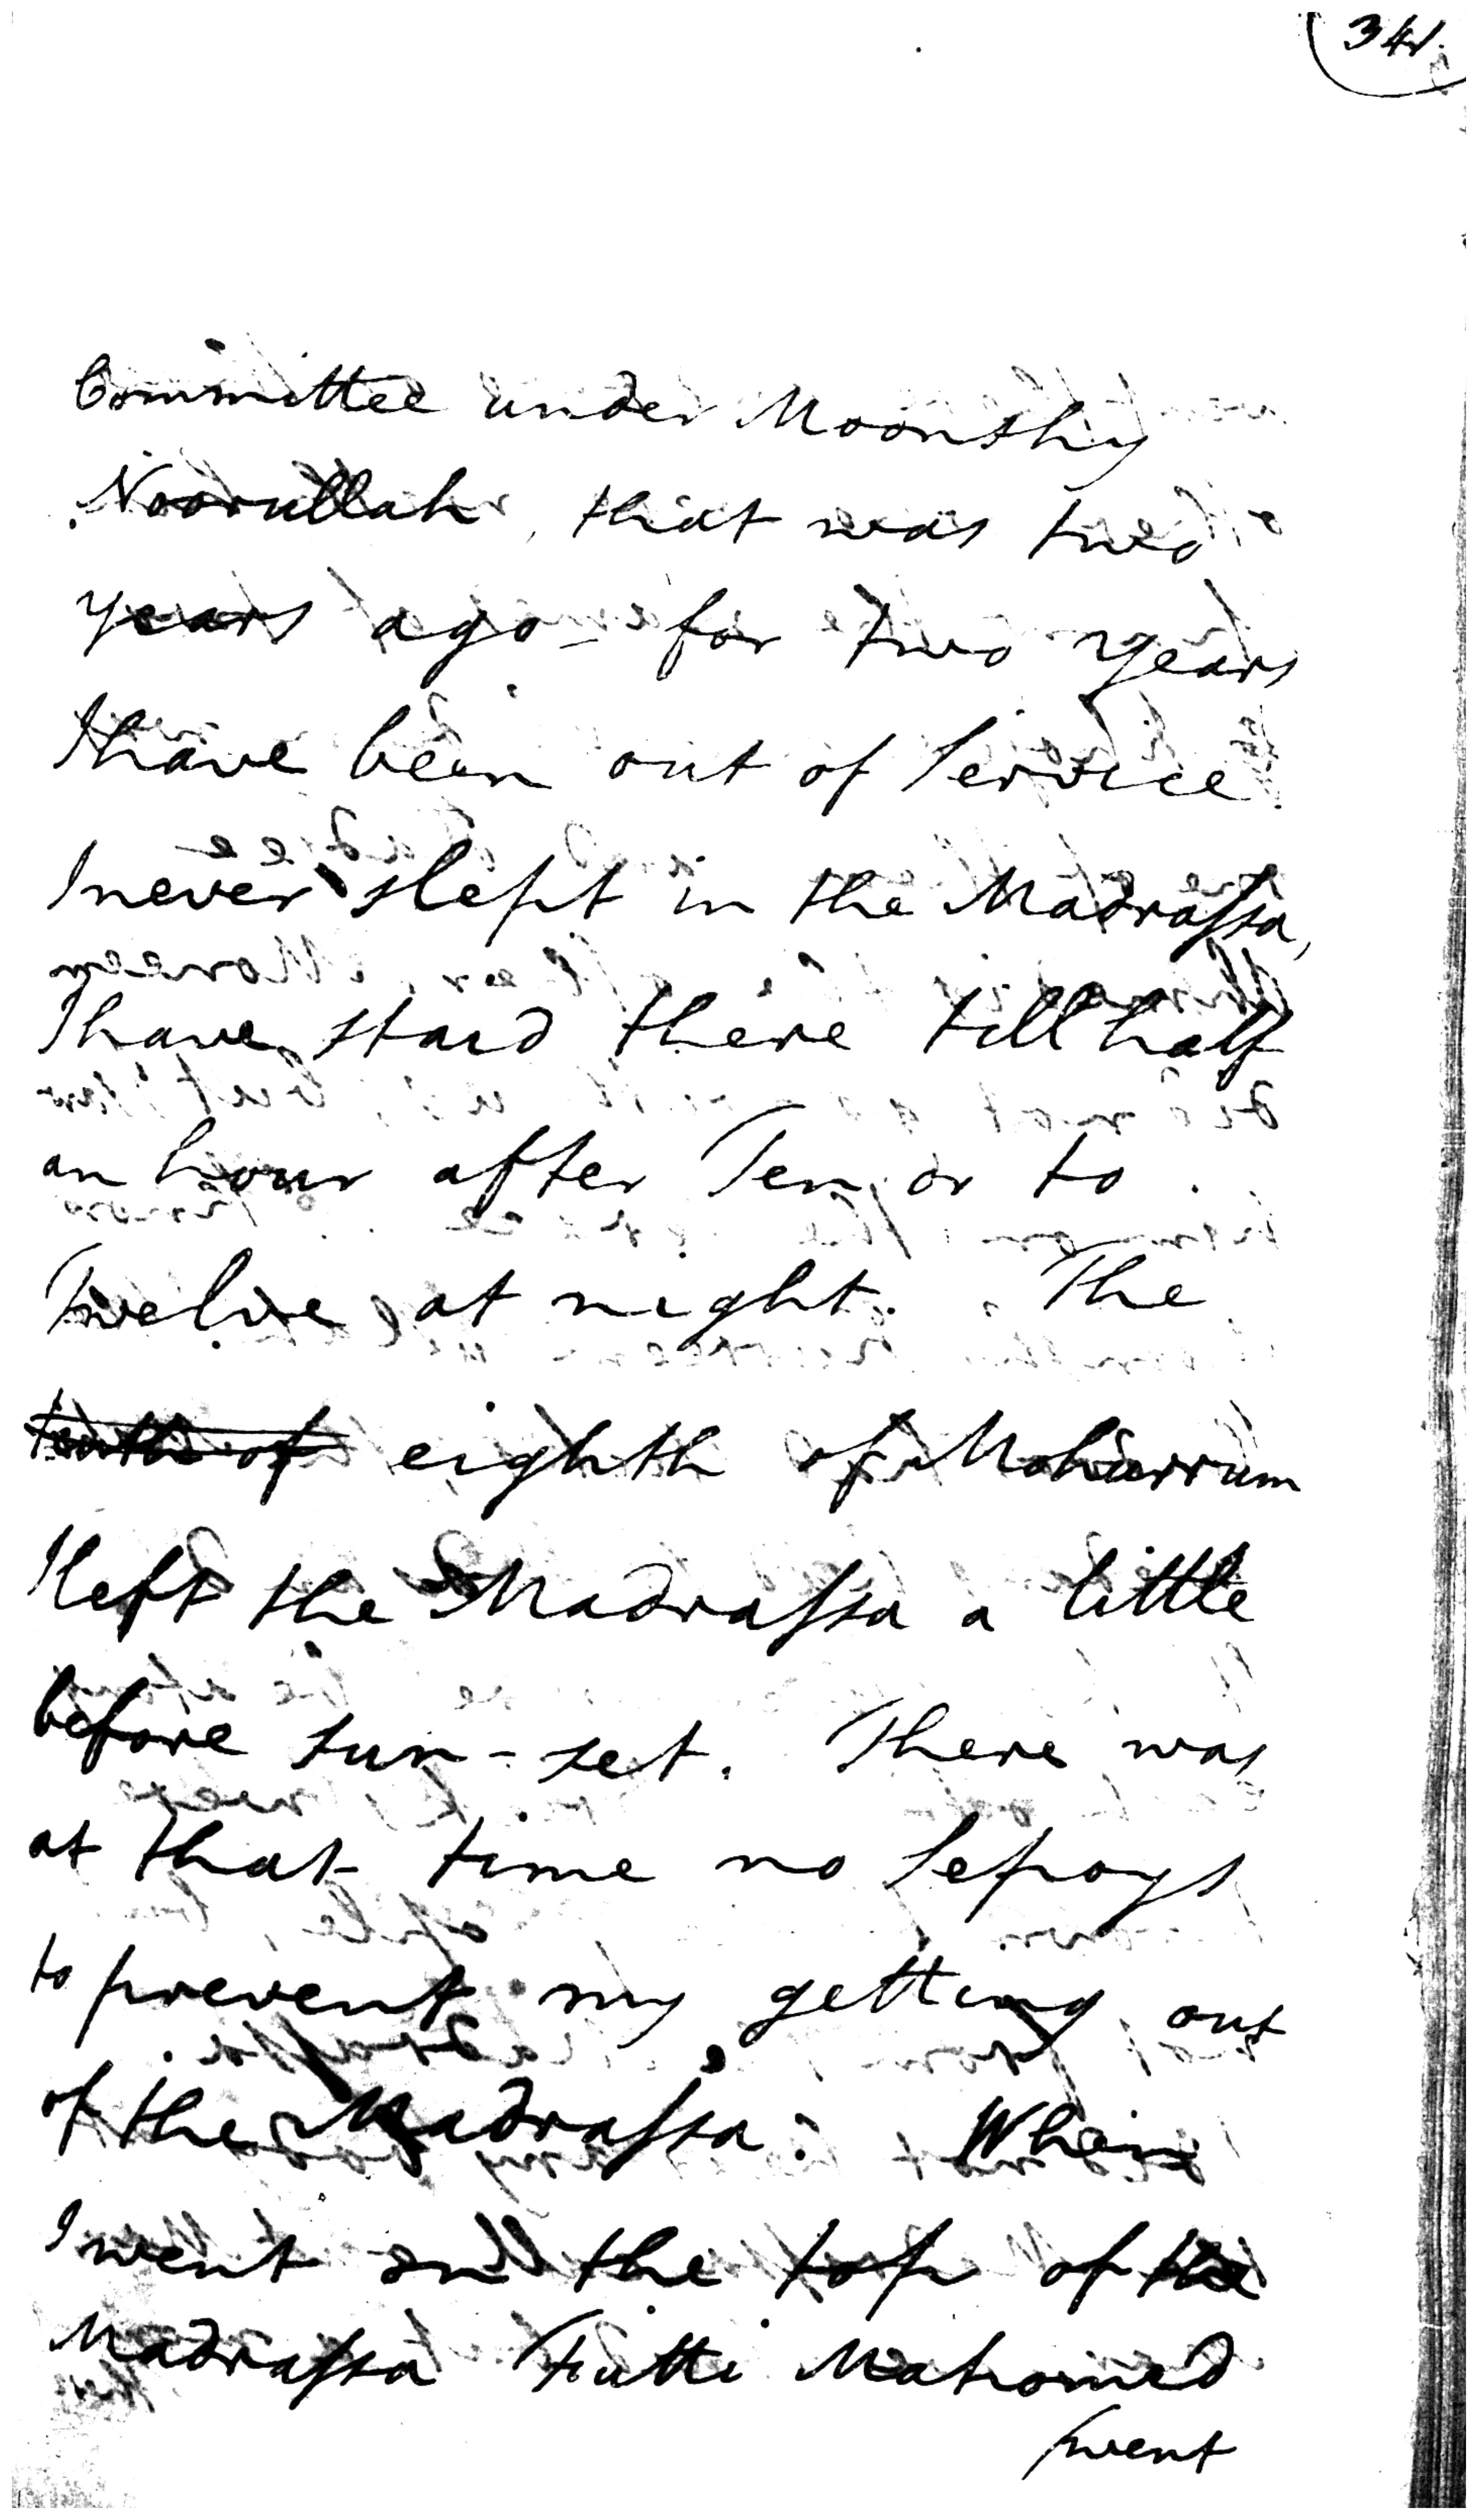 341.
Committee under Moonshy
Noorullah, that was two
years ago – for two years
I have been out of Service.
I never slept in the Madrassa,
I have staid there till half
an hour after Ten or to
Twelve at night. The
tenth of eighth of Moharrum
I left the Madrassa a little
before sun-set. There was
at that time no Sepoys
to prevent my getting out
of the Madrassa. When
I went on the top of the
Madrassa Futti Mahomed
went